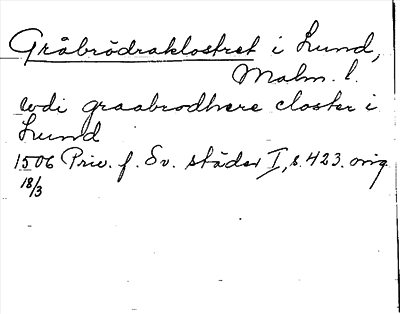 Gråbrödraklostret i Lund,
Malm. l.
wdi graabrodhere closter i
Lund
1506 Priv. f. Sv. städer I, s. 423. orig
18/3